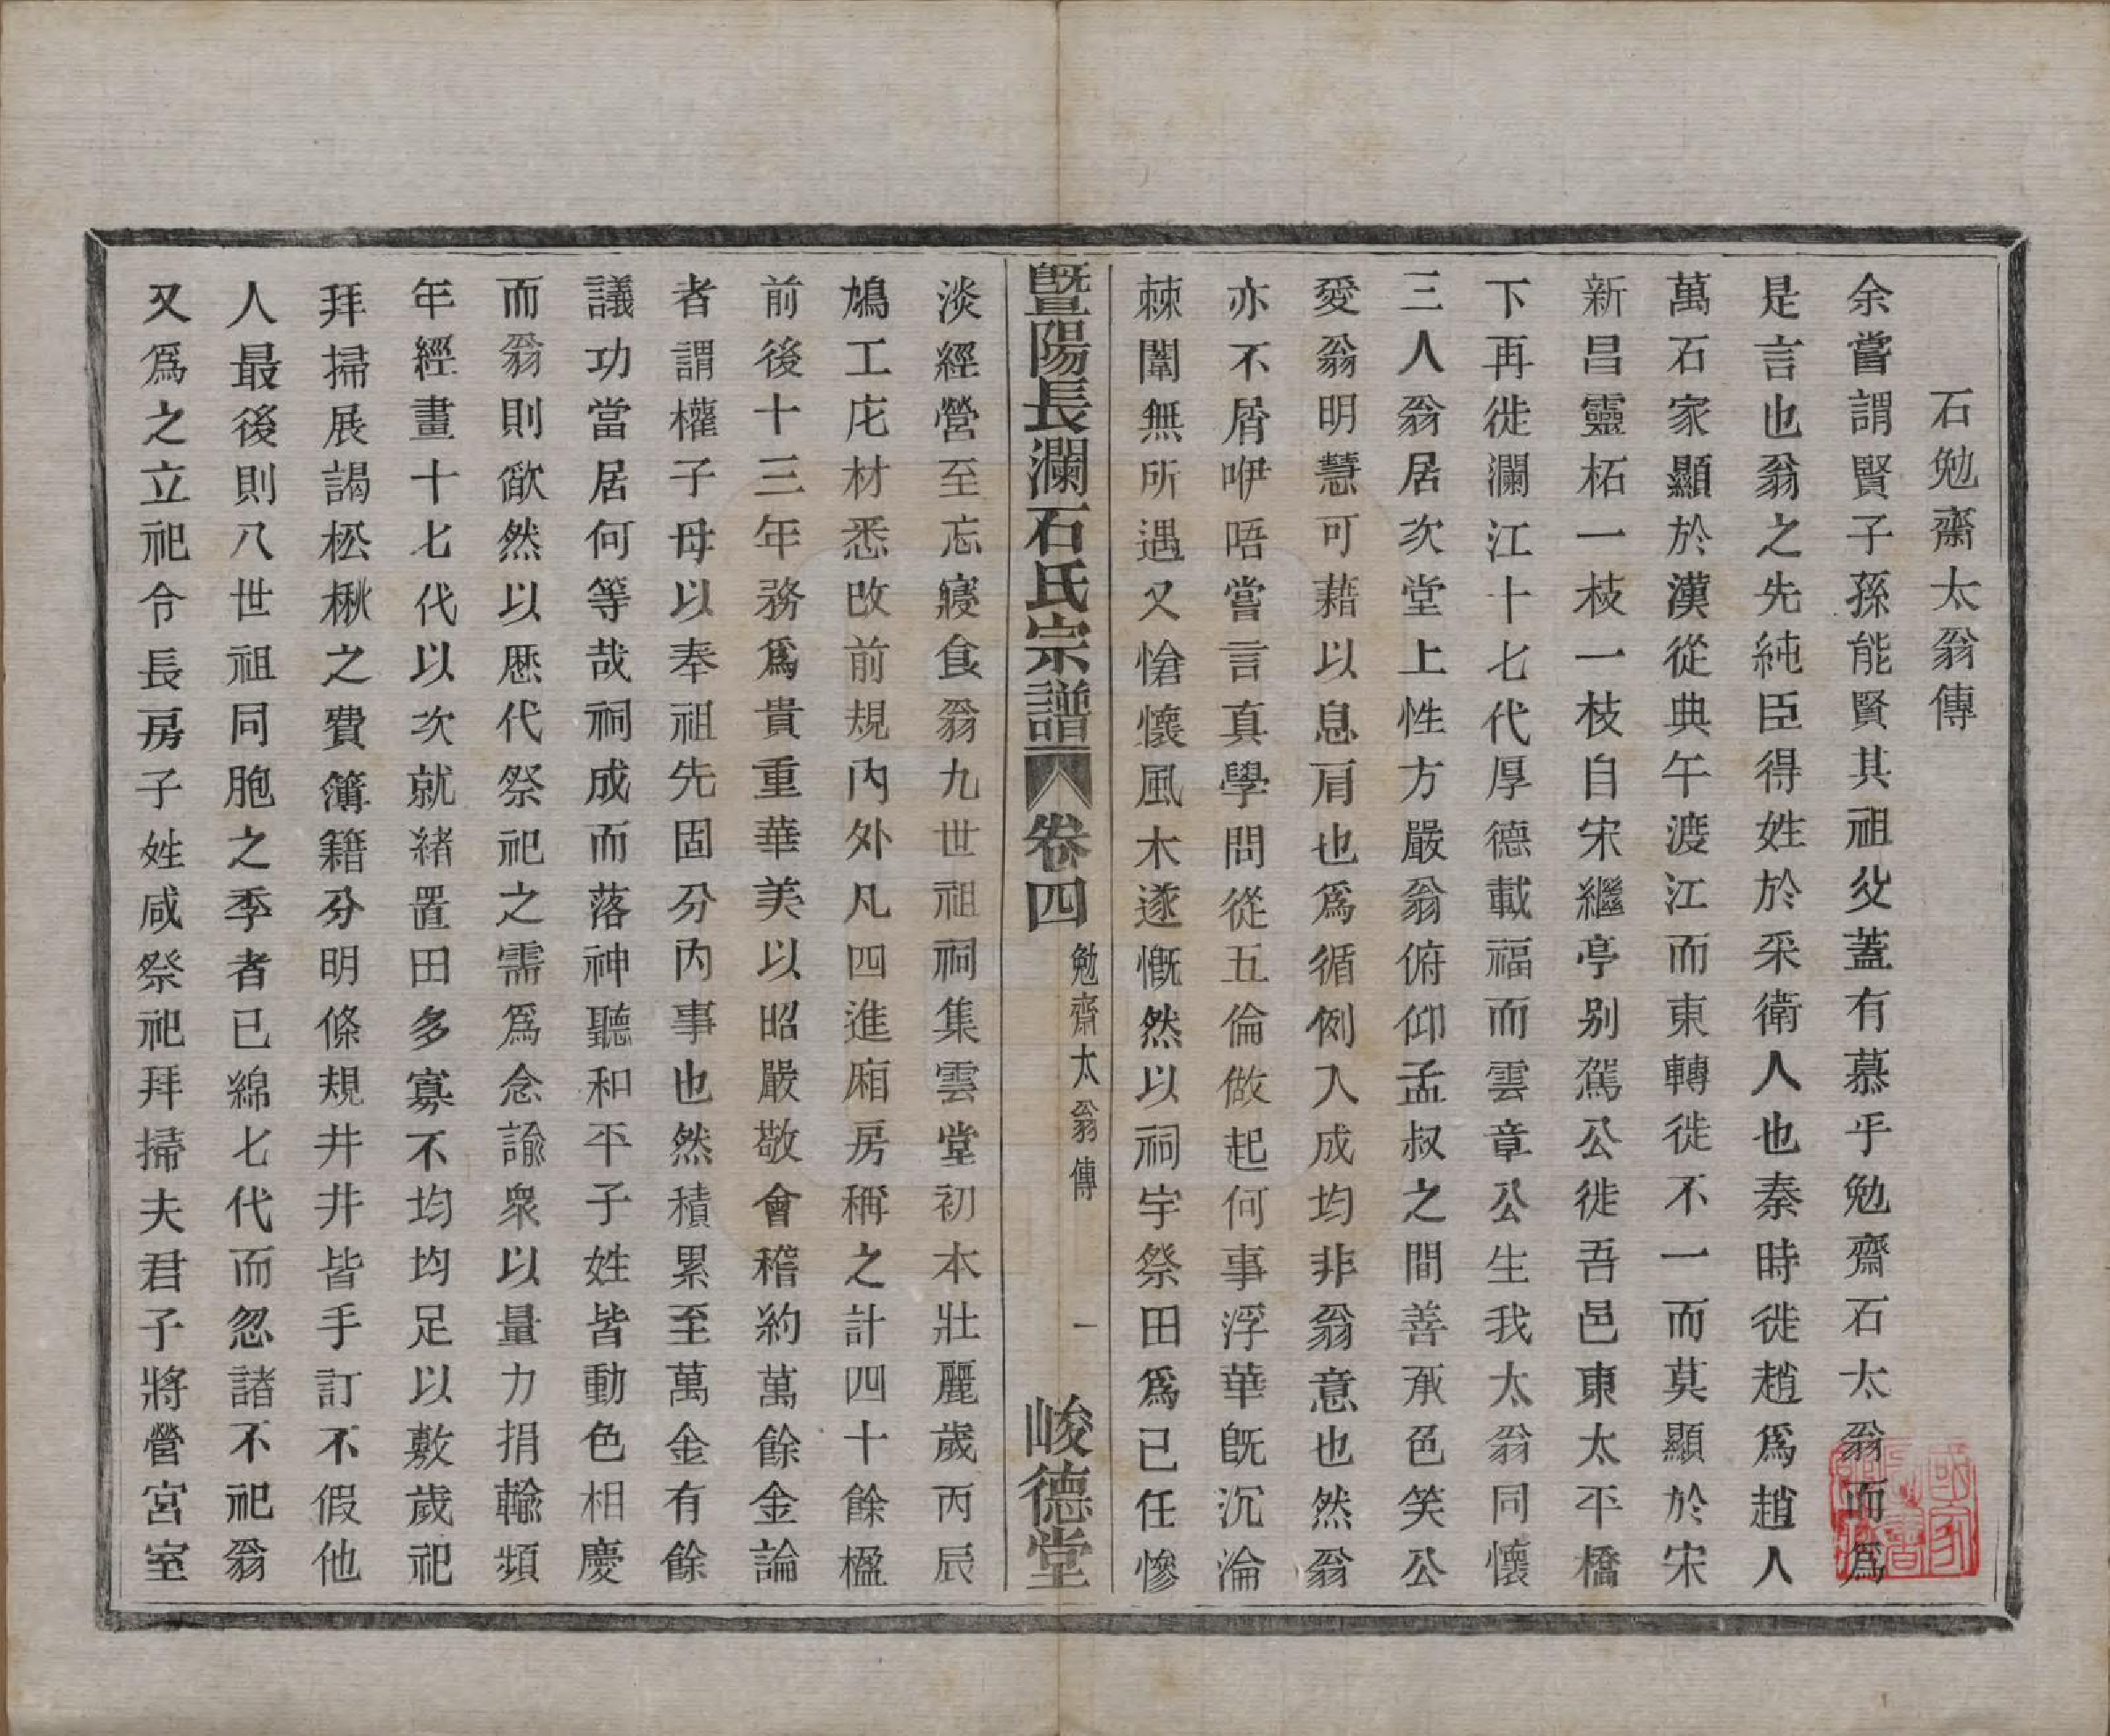 石勉齋太翁傳
余嘗謂賢子孫能賢其祖父蓋有慕乎勉齋石太翁而爲
是言也翁之先純臣得姓於采衛人也秦時徙趙爲趙人
萬石家顯於漢從典午渡江而東轉徙不一而莫顯於宋
新昌靈柘一枝一枝自宋繼亭別駕公徙吾邑東太平橋
下再徙瀾江十七代厚德載福而雲章公生我太翁同懷
三人翁居次堂上性方嚴翁俯仰孟叔之間善承色笑公
愛翁明慧可藉以息肩也爲循例入成均非翁意也然翁
亦不屑咿唔嘗言真學問從五倫做起何事浮華旣沉淪
棘闈無所遇又愴懷風木遂慨然以祠宇祭田爲已任慘
暨陽長瀾石氏宗譜 卷四 勉齋太翁傳 一 峻德堂
淡經營至忘寢食翁九世祖祠集雲堂初本壯麗歲丙辰
鳩工庀材悉改前規內外凡四進廂房稱之計四十餘楹
前後十三年務爲貴重華美以昭嚴敬會稽約萬餘金論
者謂權子母以奉祖先固分內事也然積累至萬金有餘
議功當居何等哉祠成而落神聽和平子姓皆動色相慶
而翁則歉然以歷代祭祀之需爲念諭衆以量力捐輸頻
年經畫十七代以次就緒置田多寡不均均足以敷歲祀
拜掃展謁松楸之費簿籍分明條規井井皆手訂不假他
人最後則八世祖同胞之季者已綿七代而忽諸不祀翁
又爲之立祀令長房子姓咸祭祀拜掃夫君子將營宮室